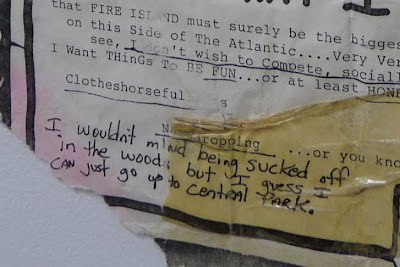 that FIRE ISLAND must surely be the bigges
on this Side of The Atlantic....Very Ver
see, I don't wish to compete, sociall
I Want THinGs To BE FUN...or at least HONE
Clotheshorseful
Namedropping ...or you kno
I wouldn't mind being sucked off
in the woods but I guess I
CAN just go up to Central PARK.